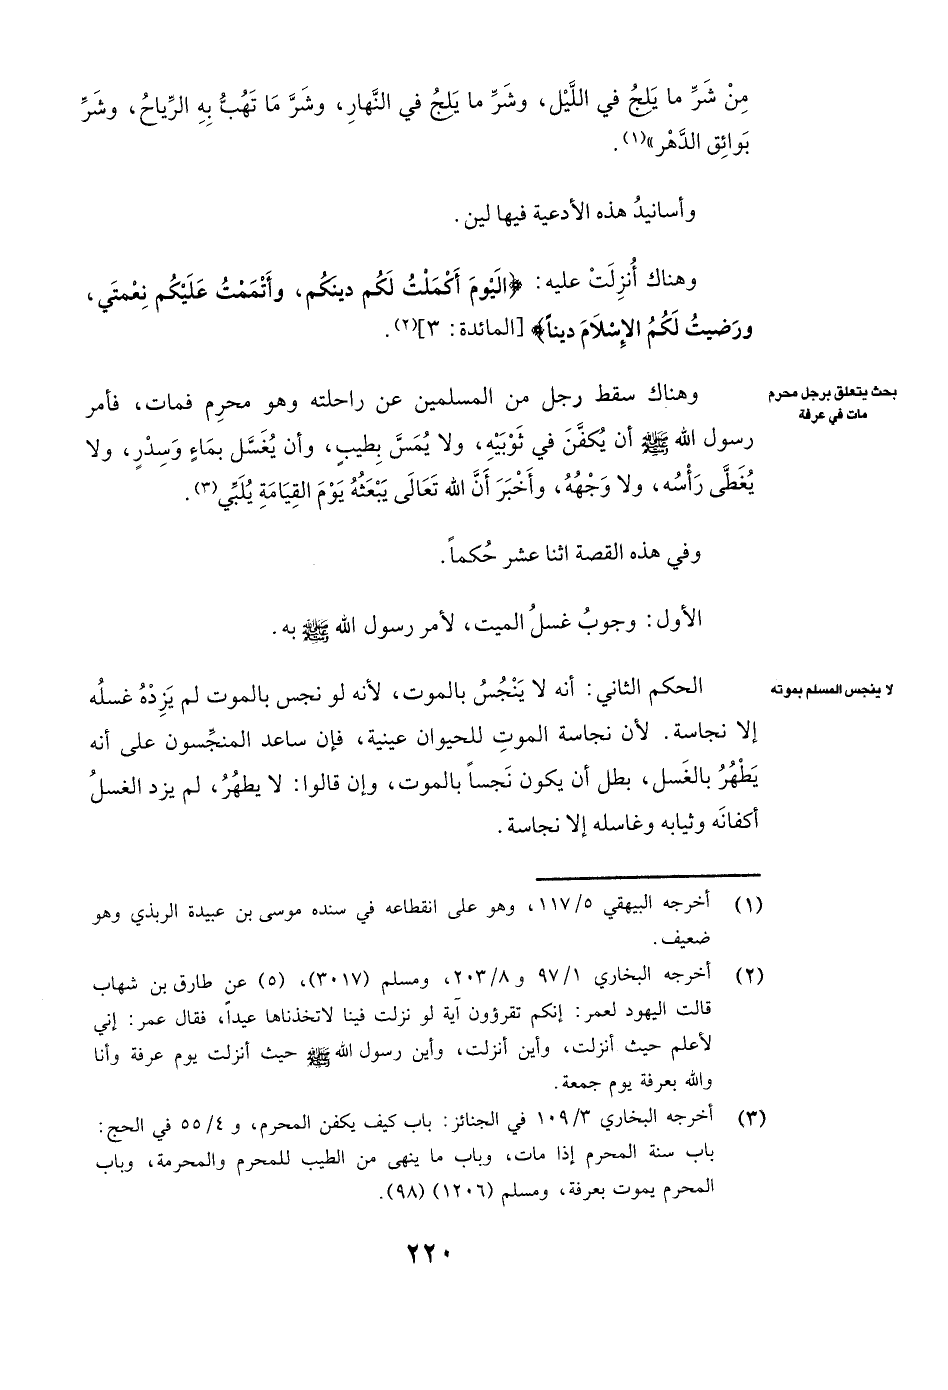 مِنْ شَرِّ ما يَلِجُ في اللَّيْل، وشَرِّ ما يَلِجُ في النَّهارِ، وشَرَّ مَا تَهُبُّ بِهِ الرِّياحُ، وشَرِّ
بَوائِق الدَّهْر»(١).
وأسانيدُ هذه الأدعية فيها لين.
وهناك أُنزِلَتْ عليه: ﴿اليَوْمَ أَكْمَلْتُ لَكُم دينَكُم، وأَتْمَمْتُ عَلَيْكُم نِعْمتَي،
ورَضيتُ لَكُمُ الإِسْلَامَ ديناً﴾ [المائدة: ٣](٢).
بحث يتعلق برجل محرم
مات في عرفة
وهناك سقط رجل من المسلمين عن راحلته وهو محرِم فمات، فأمر
رسول الله ﷺ أن يُكفَّنَ في ثَوْبَيْهِ، ولا يُمَسَّ بِطيبٍ، وأن يُغَسَّل بمَاءٍ وَسِدْرٍ، ولا
يُغَطَّى رَأْسُه، ولا وَجْهُهُ، وأَخْبَرَ أَنَّ الله تَعَالَى يَبْعَثُهُ يَوْمَ القِيامَةِ يُلَبِّي(٣).
وفي هذه القصة اثنا عشر حُكماً.
الأول: وجوبُ غسلُ الميت، لأمر رسول الله ﷺ به.
لا ينجس المسلم بموته
الحكم الثاني: أنه لا يَنْجُسُ بالموت، لأنه لو نجس بالموت لم يَزِدْهُ غسلُه
إلا نجاسة. لأن نجاسة الموتِ للحيوان عينية، فإن ساعد المنجِّسون على أنه
يَطْهُرُ بالغَسل، بطل أن يكون نَجساً بالموت، وإن قالوا: لا يطهُرُ، لم يزد الغسلُ
أكفانَه وثيابه وغاسله إلا نجاسة.
(١) أخرجه البيهقي ١١٧/٥، وهو على انقطاعه في سنده موسى بن عبيدة الربذي وهو
ضعيف.
(٢) أخرجه البخاري ٩٧/١ و٢٠٣/٨، ومسلم (٣٠١٧)، (٥) عن طارق بن شهاب
قالت اليهود لعمر: إنكم تقرؤون آية لو نزلت فينا لاتخذناها عيداً، فقال عمر: إني
لأعلم حيث أنزلت، وأين أنزلت، وأين رسول الله ﷺ حيث أنزلت يوم عرفة وأنا
والله بعرفة يوم جمعة.
(٣) أخرجه البخاري ١٠٩/٣ في الجنائز: باب كيف يكفن المحرم، و٥٥/٤ في الحج:
باب سنة المحرم إذا مات، وباب ما ينهى من الطيب للمحرم والمحرمة، وباب
المحرم يموت بعرفة، ومسلم (١٢٠٦) (٩٨).
٢٢٠